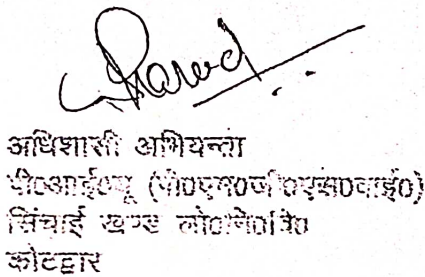 अधिशासी अभियन्ता
पी०आई०यू (पी०एम०जी०एस०वाई०)
सिंचाई खण्ड लो०नि०वि०
कोटद्वार